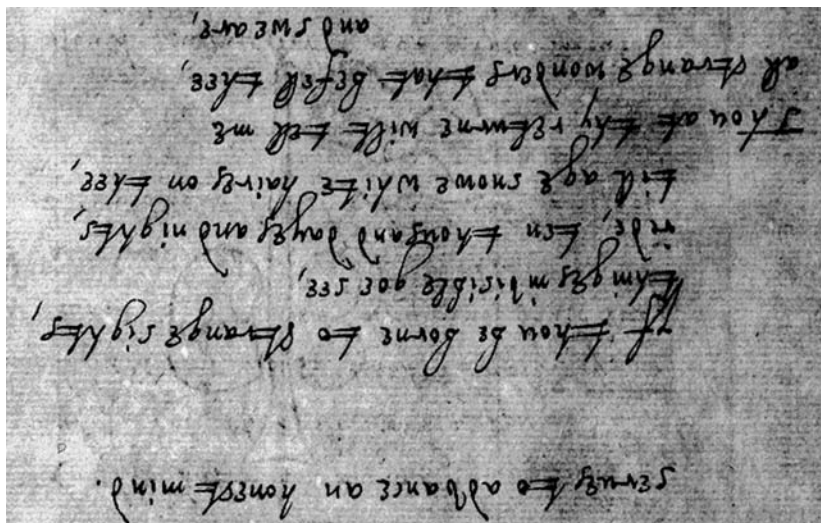 serues to advance an honest mind.
If thou be borne to strange sights,
thinges invisible goe see,
ride, ten thousand dayes and nights,
till age snowe white haires on thee,
Thou at thy returne wilt tell me
all strange wonders that befell thee,
and sweare,